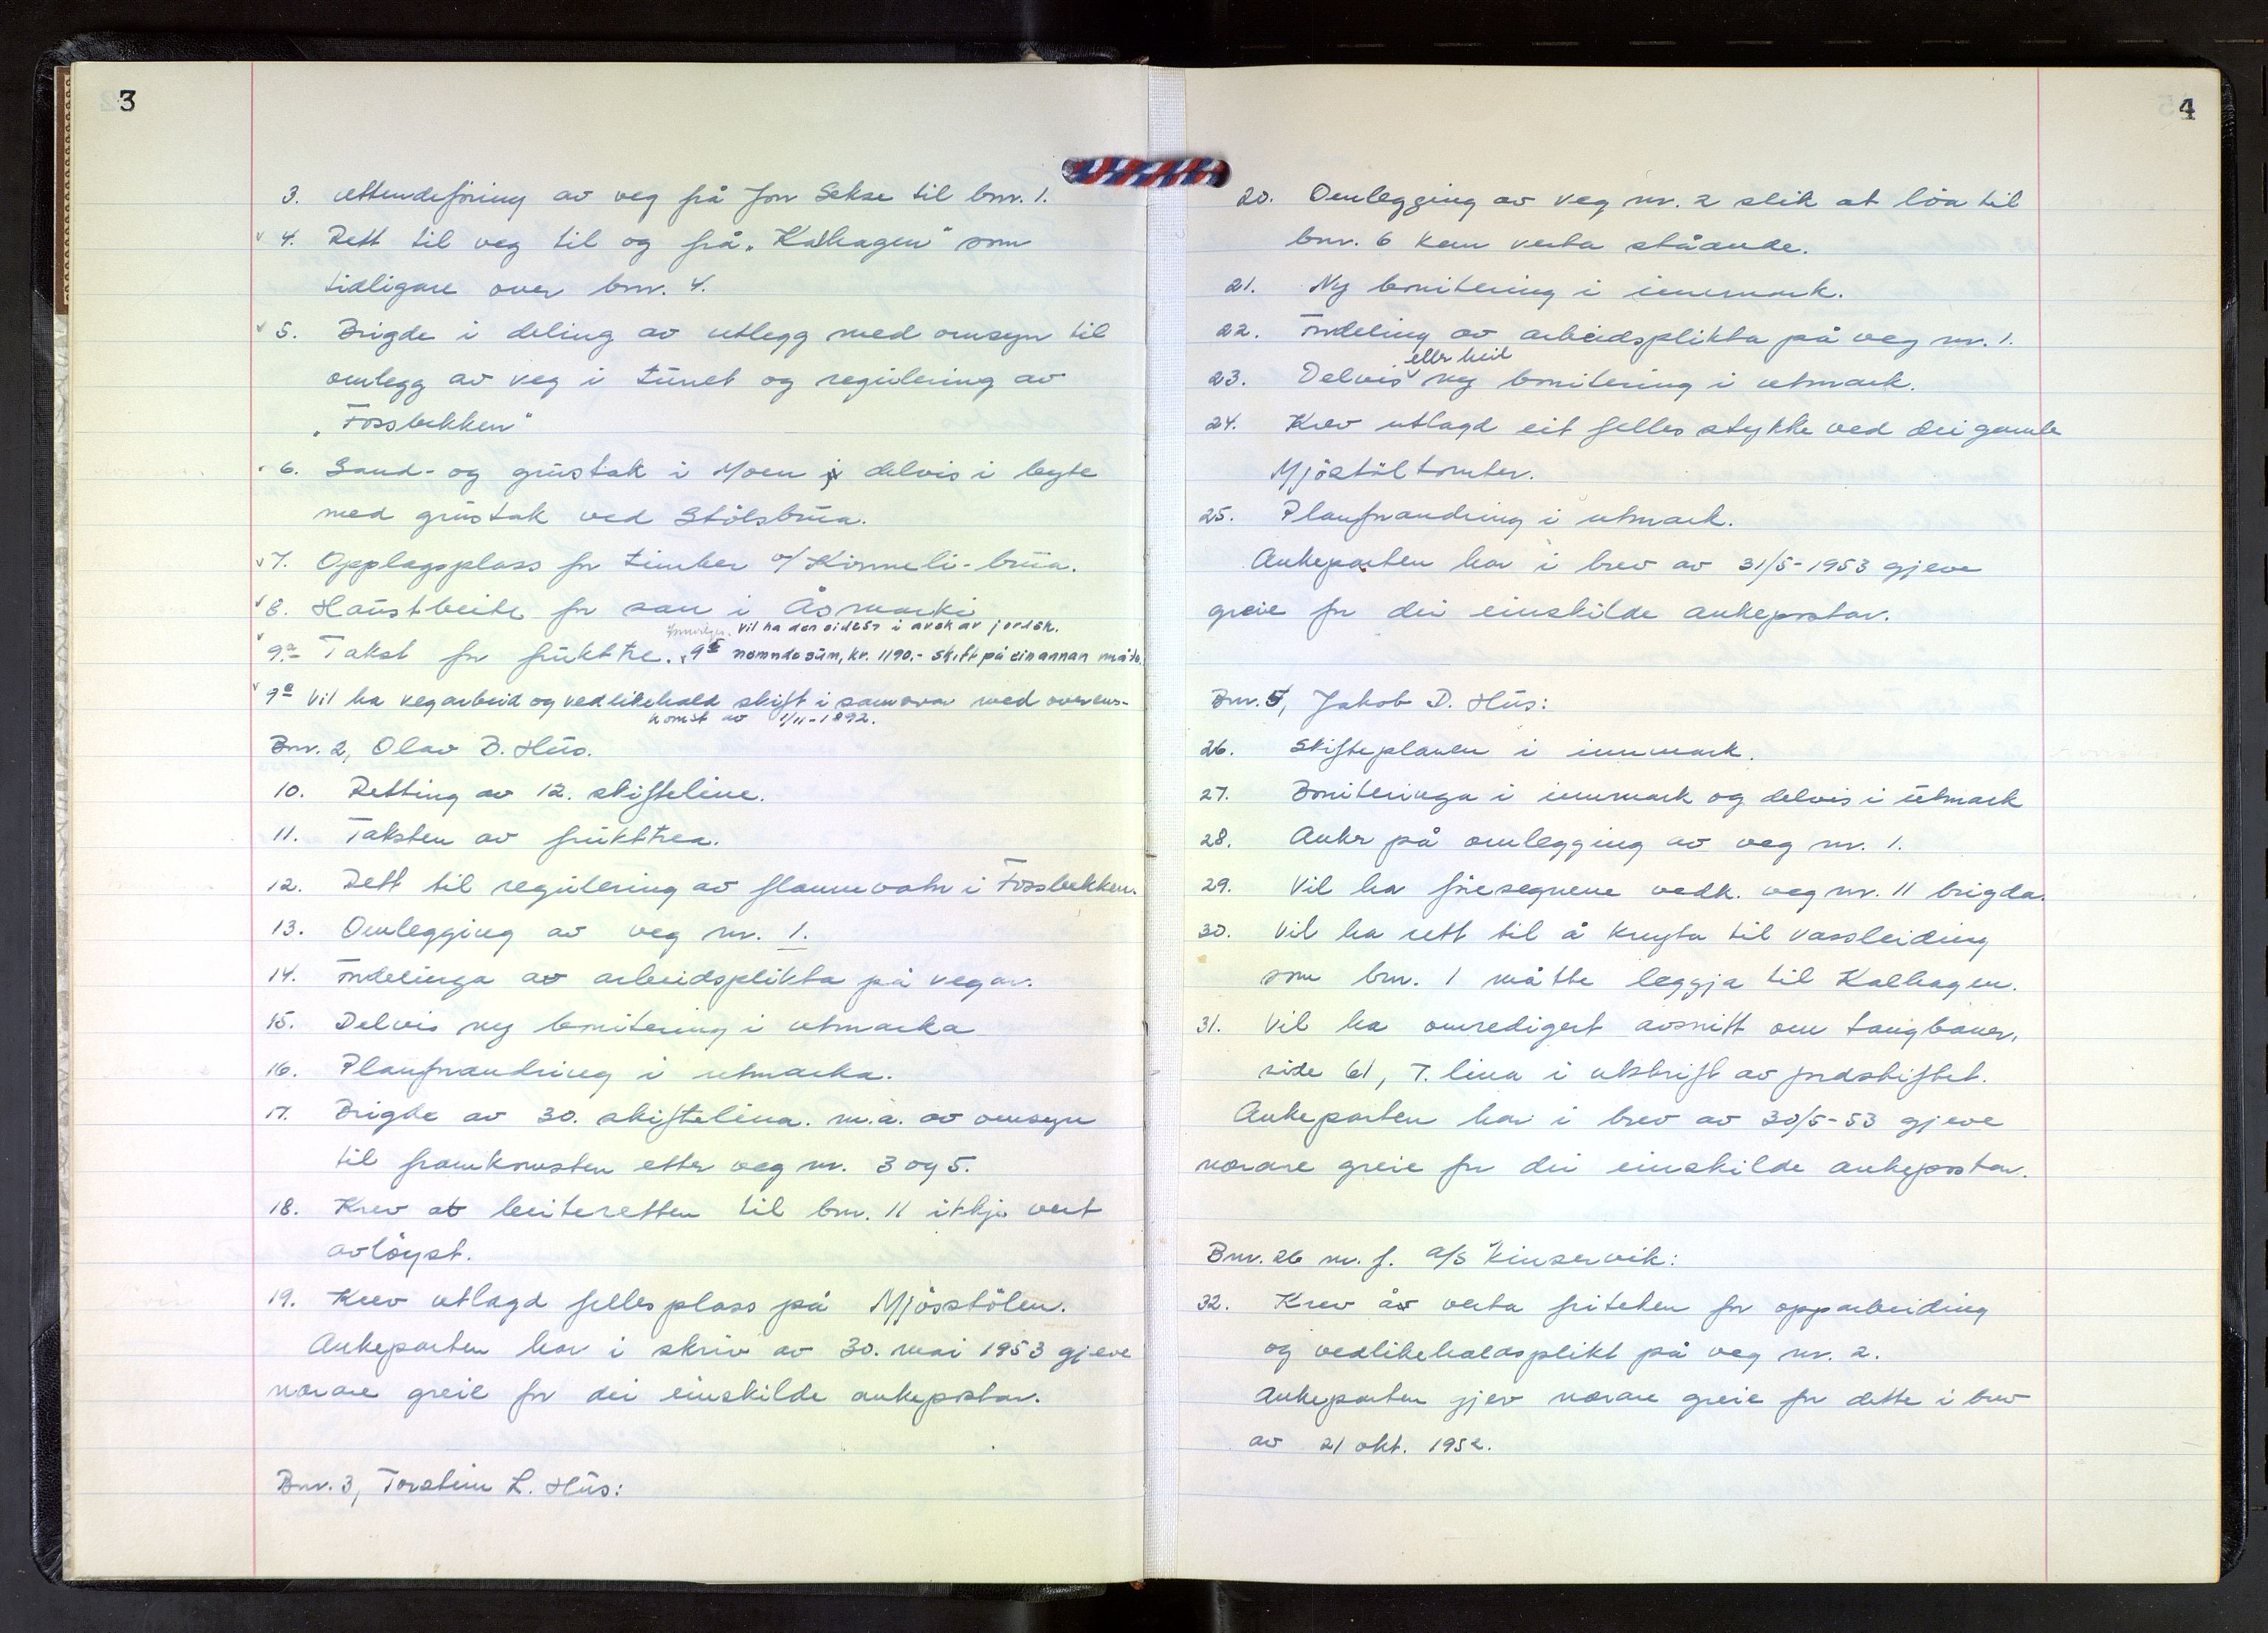 3
3. Attendeföring av veg frå Jon Sekse til bnr. 1.
4. Rett til veg til og frå "Kalhagen" som
tidligare over bnr. 4.
5. Brigde i deling av utlegg med omsyn til
omlegg av veg i tunet og regulering av
"Fossbekken"
6. Sand- og grustak i Moen delvis i byte
med grustak ved Stölsbrua.
7. Opplagsplass for timber v/ Kinneli-brua.
8. Haustbeite for sau i Åsmarki
9.a Takst for frukttre. 9b Vil ha den sidesr i avsk av jordsk.
nemnde sum, kr. 1190.- skift på ein annan måte.
9c Vil ha vegarbeid og vedlikehald skift i samsvar med overens-
komst av 1/11-1892.
Bnr. 2, Olav B. Hus.
10. Retting av 12. skifteline.
11. Taksten av frukttrea.
12. Rett til regulering av flaumvatn i Fossbekken.
13. Omlegging av veg nr. 1.
14. Fordelinga av arbeidsplikta på vegar.
15. Delvis ny bonitering i utmarka
16. Planforandring i utmarka.
17. Brigde av 30. skiftelina. m.a. av omsyn
til framkomsten etter veg nr. 3 og 5.
18. Krev at beiteretten til bnr. 11 itkje vert
avlöyst.
19. Krev utlagd fellesplass på Mjösstölen.
Ankeparten har i skriv av 30. mai 1953 gjeve
nærare greie for dei einskilde ankepostar.
Bnr. 3, Torstein L. Hus:
4
20. Omlegging av veg nr. 2 slik at löa til
bnr. 6 kan verta ståande.
21. Ny bonitering i innmark.
22. Fordeling av arbeidsplikta på veg nr. 1.
23. Delvis eller heil ny bonitering i utmark.
24. Krev utlagd eit felles stykke ved dei gamle
Mjöstöltomter.
25. Planforandring i utmark.
Ankeparten har i brev av 31/5-1953 gjeve
greie for dei einskilde ankepostar.
Bnr. 5, Jakob D. Hus:
26. Skifteplanen i innmark.
27. Boniteringa i innmark og delvis i utmark
28. Ankr på omlegging av veg nr. 1.
29. Vil ha föresegnene vedk. veg nr. 11 brigda.
30. Vil ha rett til å knyta til vassleiding
som bnr. 1 måtte leggja til Kalhagen.
31. Vil ha omredigert avsnitt om taugbaner,
side 61, 7. lina i utskrift av jordskiftet.
Ankeparten har i brev av 30/5-53 gjeve
nærare greie for dei einskilde ankepostar.
Bnr. 26 m. f. A/S Kinservik:
32. Krev å verta friteken for opparbeiding
og vedlikehaldsplikt på veg nr. 2.
Ankeparten gjev nærare greie for dette i brev
av 21 okt. 1952.